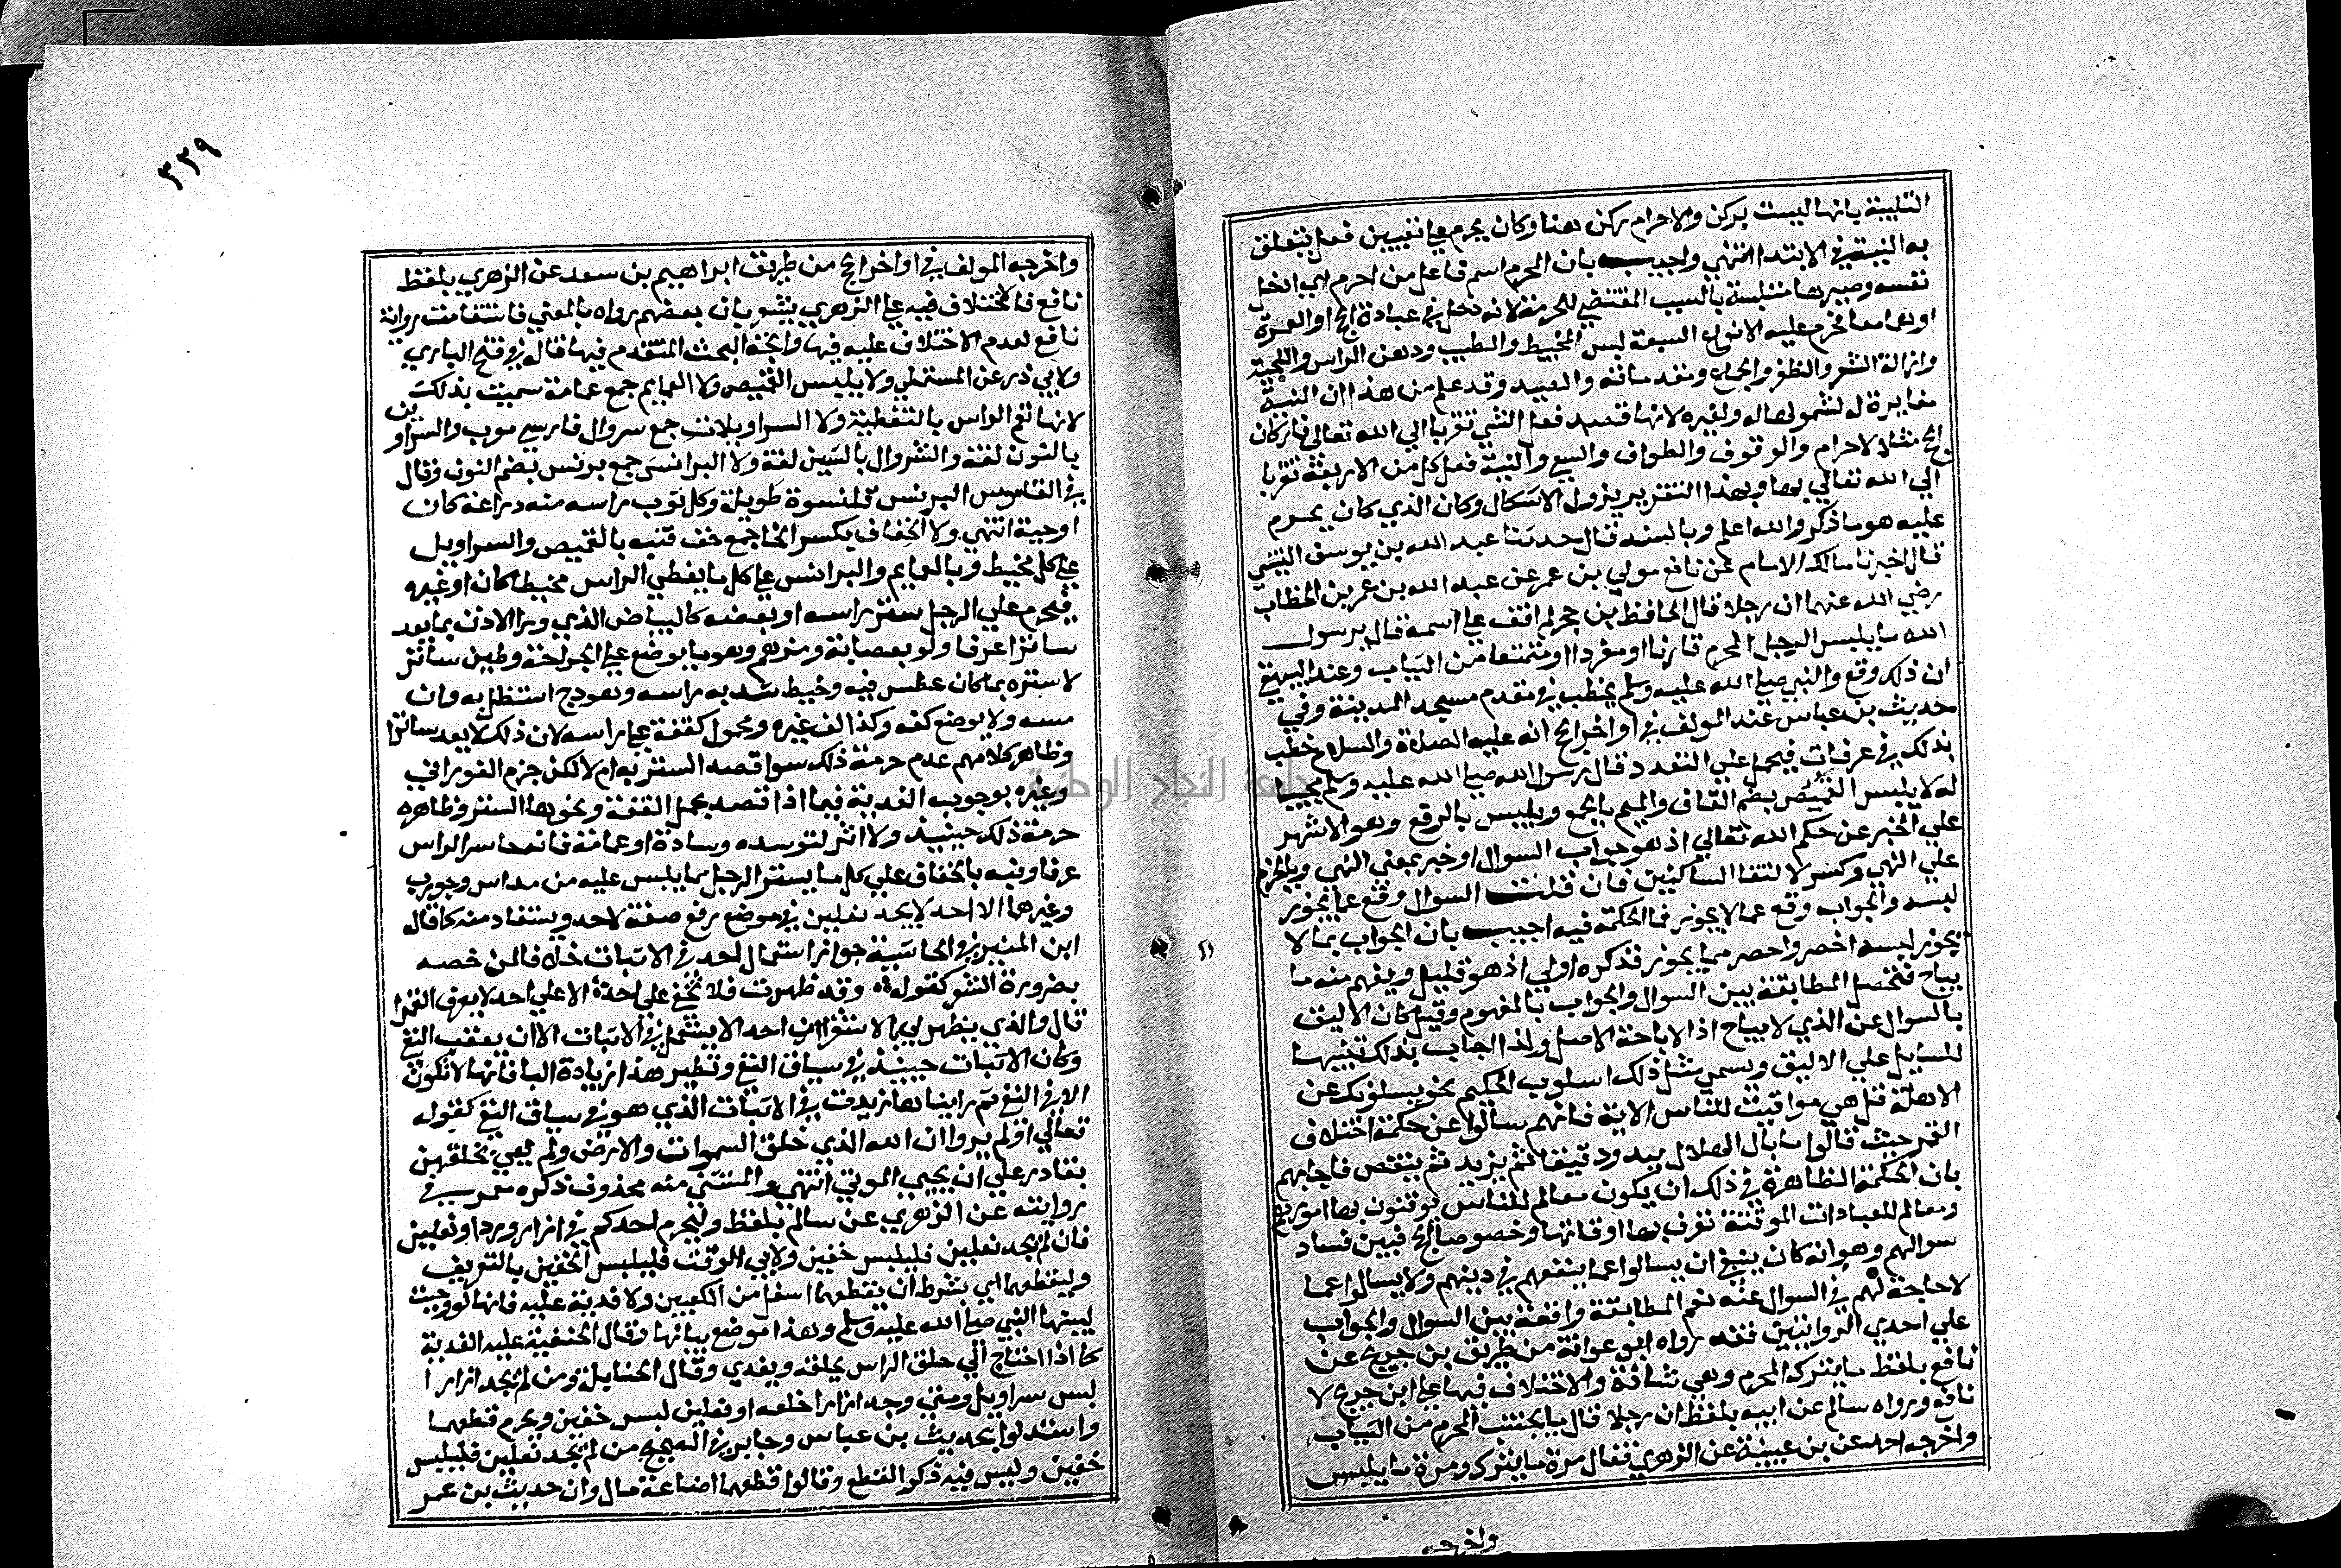 التلبية بانها ليست بركن والاحرام ركن هنا وكان يحرم على تعيين فعل يتعلق
به النية في الابتدا انتهى واجيب بان المحرم اسم فاعل من احرم اي ادخل
نفسه وصيرها متلبسة بالسبب المقتضي للحرمة لانه دخل في عبادة الحج او العمرة
او هما معا فحرم عليه الانواع السبعة لبس المخيط والطيب ودهن الراس واللحية
وازالة الشعر والظفر والجماع ومقدماته والصيد وقد علم من هذا ان النية
مغايرة له لشمولها له ولغيره لانها قصد فعل الشي تقربا الي الله تعالى فاركان
الحج مثلا الاحرام والوقوف والطواف والسعي والنية فعل كل من الاربعة تقربا
الي الله تعالي بها وبهذا التقرير يزول الاشكال وكان الذي كان يحرم
عليه هو ما ذكر والله اعلم وبالسند قال حدثنا عبد الله بن يوسف التنيسي
قال اخبرنا مالك الامام عن نافع مولي بن عمر عن عبد الله بن عمر بن الخطاب
رضي الله عنهما ان رجلا قال الحافظ بن حجر لم اقف على اسمه قال يرسول
الله ما يلبس الرجل المحرم قارنا او مفردا او متمتعا من الثياب وعند البيهقي
ان ذلك وقع والنبي صلى الله عليه وسلم يخطب في مقدم مسجد المدينة وفي
حديث بن عباس عند المولف في اواخر الحج انه عليه الصلاة والسلام خطب
بذلك في عرفات فيحمل علي التعدد قال رسول الله صلى الله عليه وسلم مجيبا
له لا يلبس القمص بضم القاف والميم بالجمع ويلبس بالرفع وهو الاشهر
علي الخبر عن حكم الله تعالي اذ هو جواب السوال او خبر بمعني النهي وبالجزم
علي النهي وكسر لالتقا الساكنين فان قلت السوال وقع عما يجوز
لبسه والجواب وقع عما لا يجوز فما الحكمة فيه اجيب بان الجواب بما لا
يجوز لبسه اخصر واحصر مما يجوز فذكره اولي اذ هو قليل ويفهم منه ما
يباح فتحصل المطابقة بين السوال والجواب بالمفهوم وقيل كان الاليق
بالسوال عن الذي لا يباح اذ الاباحة الاصل ولذا اجاب بذلك تنبيها
للسايل علي الاليق ويسمى مثل ذلك اسلوب الحكيم نحو يسلونك عن
الاهلة قل هي مواقيت للناس الاية فانهم سالوا عن حكمة اختلاف
القمر حيث قالوا ما بال الهلال يبدو دقيقا ثم يزيد ثم ينقص فاجابهم
بان الحكمة الظاهرة في ذلك ان يكون معالم للناس يوقتون بها امورهم
ومعالم للعبادات الموقتة تعرف بها اوقاتها وخصوصا الحج فبين فساد
سوالهم وهو انه كان ينبغي ان يسالوا عما ينفعهم في دينهم ولا يسالوا عما
لا حاجة لهم في السوال عنه نعم المطابقة واقعة بين السوال والجواب
علي احدي الروايتين فقد رواه ابو عوانة من طريق بن جريج عن
نافع بلفظ ما يترك المحرم وهي شاذة والاختلاف فيها على ابن جريج لا
نافع ورواه سالم عن ابيه بلفظ ان رجلا قال ما يجتنب المحرم من الثياب
واخرجه احمد عن بن عيينة عن الزهري فقال مرة ما يترك ومرة ما يلبس
واخرجه
٣٣٩
واخرجه المولف في اواخر الحج من طريق ابراهيم بن سعد عن الزهري بلفظ
نافع فالاختلاف فيه على الزهري يشعر بان بعضهم رواه بالمعني فاستقامت رواية
نافع لعدم الاختلاف عليه فيها واتجه البحث المتقدم فيها قاله في فتح الباري
ولابي ذر عن المستملي ولا يلبس القميص ولا العمايم جمع عمامة سميت بذلك
لانها تعم الراس بالتغطية ولا السراويلات جمع سروال فارسي معرب والسراوين
بالنون لغة والشروال بالشين لغة ولا البرانس جمع برنس بضم النون وقال
في القاموس البرنس قلنسوة طويلة وكل ثوب راسه منه دراعة كان
او جبة انتهى ولا الخفاف بكسر الخا جمع خف فنبه بالقميص والسراويل
على كل مخيط وبالعمايم والبرانس على كل ما يغطي الراس مخيطا كان او غيره
فيحرم علي الرجل ستر راسه او بعضه كالبياض الذي ورا الاذن بما يعد
ساترا عرفا ولو بعصابة ومرهم وهو ما يوضع على الجراحة وطين ساتر
لا سترة بما كان عطس فيه وخيط شد به راسه وهودج استظل به وان
مسه ولا بوضع كفه وكذا كف غيره ومحمول كقفة على راسه لان ذلك لا يعد ساترا
وظاهر كلامهم عدم حرمة ذلك سوا قصد الستر به ام لا لكن جزم الفوراني
وغيره بوجوب الفدية فيما اذا قصد بحمل القفة ونحوها الستر وظاهره
حرمة ذلك حينيذ ولا اثر لتوسده وسادة او عمامة فانه حاسر الراس
عرفا ونبه بالخفاف علي كل ما يستر الرجل مما يلبس عليه من مداس وجورب
وغيرهما الا احد لا يجد نعلين في موضع رفع صفة لاحد ويستفاد منه كما قال
ابن المنير في الحاشية جواز استعمال احد في الاثبات خلافا لمن خصه
بضرورة الشعر كقوله وقد ظهرت فلا تخفى على احد الا علي احد لا يعرف القمرا
قال والذي يظهر لي بالاستقرا ان احد لا يستعمل في الاثبات الا ان يعقب النفي
وكان الاثبات حينيذ في سياق النفي ونظير هذا زيادة البا فانها لا تكون
الا في النفي ثم راينا ها زيدت في الاثبات الذي هو في سياق النفي كقوله
تعالي اولم يروا ان الله الذي خلق السموات والارض ولم يعي بخلقهن
بقادر علي ان يحيي الموتي انتهى والمستثنى منه محذوف ذكره معمر في
روايته عن الزهري عن سالم بلفظ وليحرم احدكم في ازار وردا ونعلين
فان لم يجد نعلين فليلبس خفين ولابي الوقت فليلبس الخفين بالتعريف
وليقطعهما اي بشرط ان يقطعهما اسفل من الكعبين ولا فدية عليه فانها لو وجبت
لبينها النبي صلى الله عليه وسلم وهذا موضع بيانها وقال الحنفية عليه الفدية
كما اذا احتاج الي حلق الراس يحلقه ويفدي وقال الحنابلة ومن لم يجد ازارا
لبس سراويل ومتي وجد ازارا خلعه او نعلين لبس خفين ويحرم قطعهما
واستدلوا بحديث بن عباس وجابر في الصحيح من لم يجد نعلين فليلبس
خفين وليس فيه ذكر القطع وقالوا قطعهما اضاعة مال وان حديث بن عمر
جامعة النجاح الوطنية